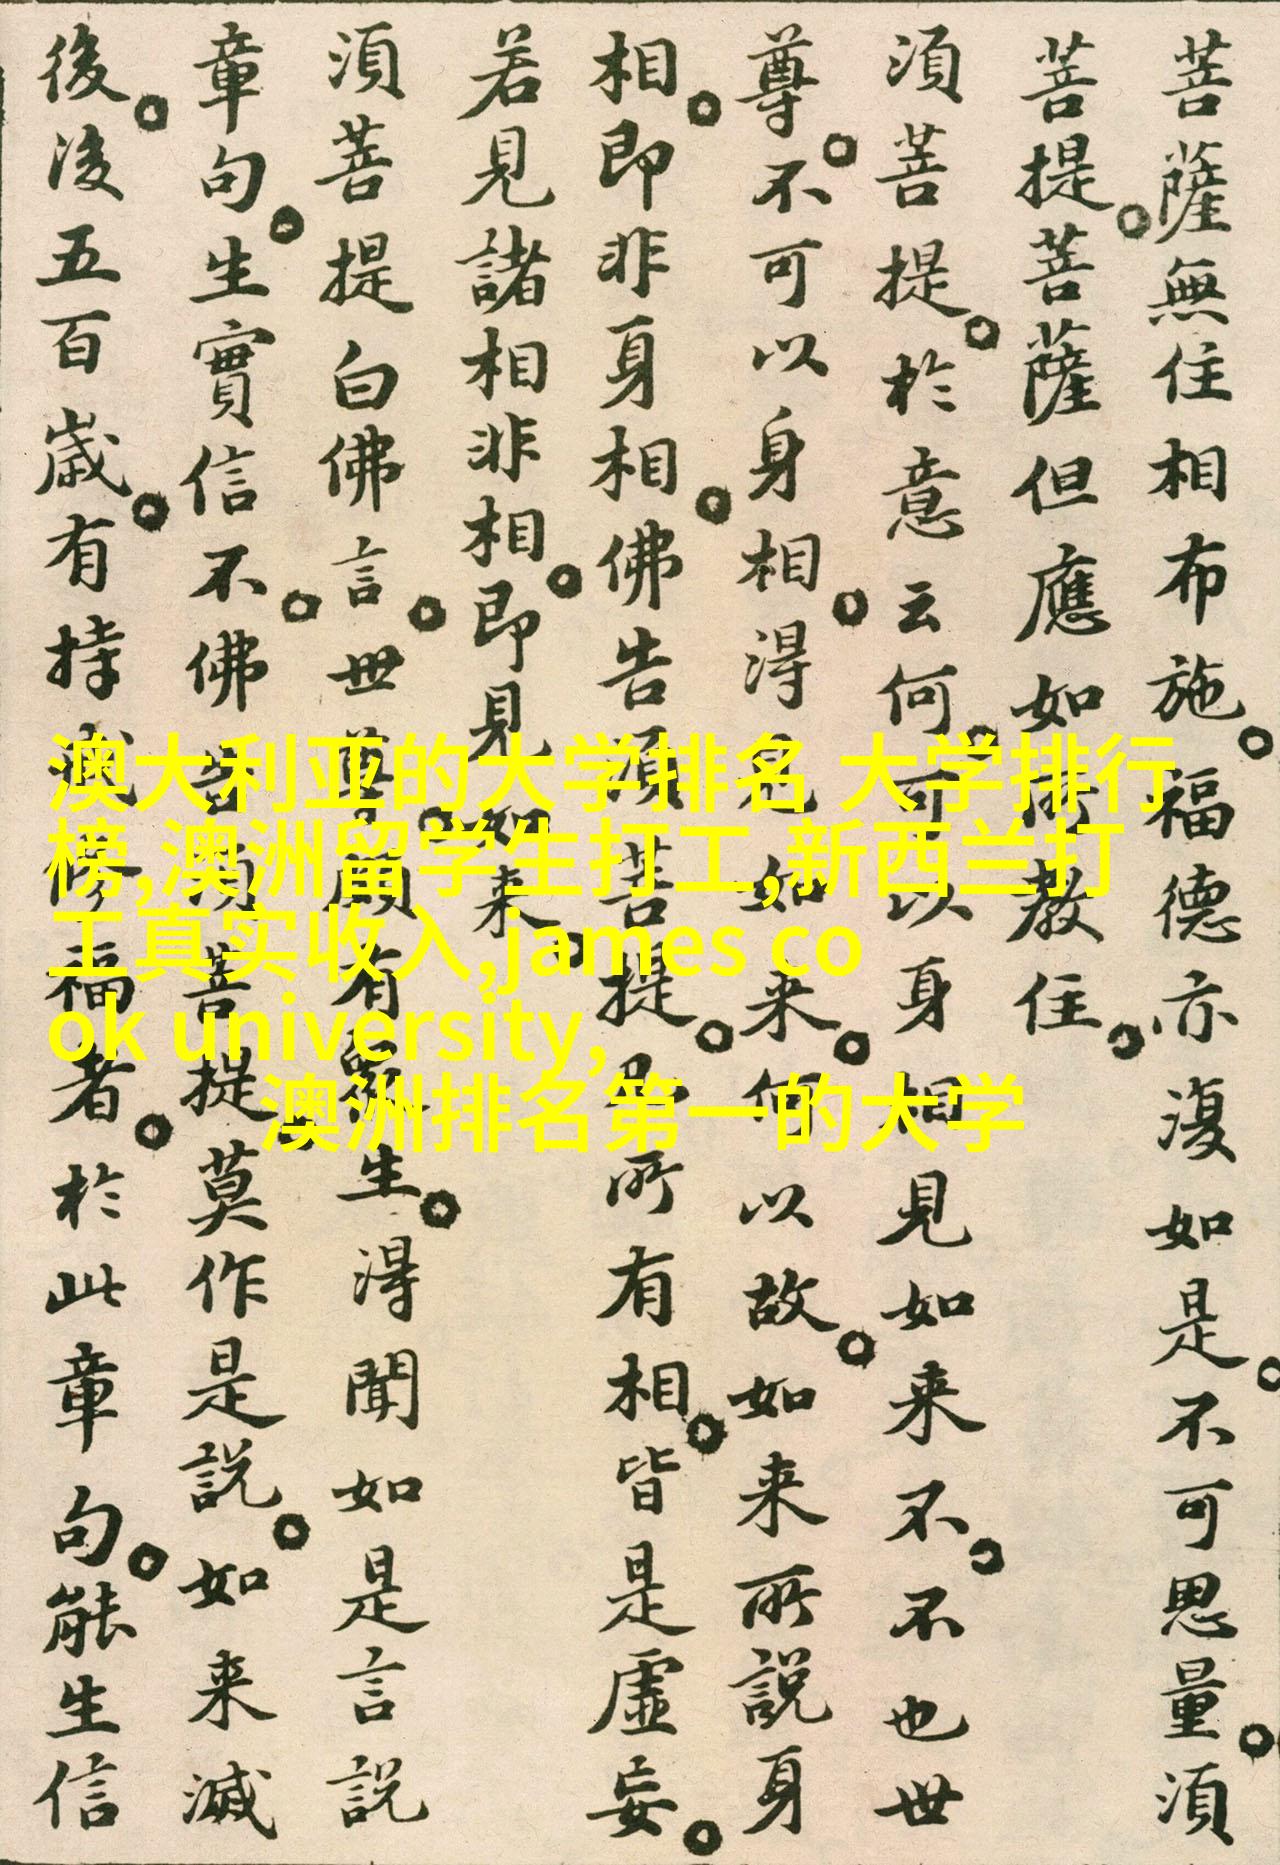 菩薩無住相布施。福德亦復如是。不可思量。須
菩提。菩薩但應如所教住。
須菩提。於意云何。可以身相見如来不。不也世
尊。不可以身相。得見如来。何以故。如来所說身
相。即非身相。佛告須菩提。凡所有相。皆是虛妄。
若見諸相非相。即見如来。
須菩提白佛言。世尊。頗有衆生。得聞如是言說
章句。生實信不。佛告須菩提。莫作是說。如来滅
後。後五百歲。有持戒修福者。於此章句。能生信
澳大利亚的大学排名 大学排行
榜,澳洲留学生打工,新西兰打
工真实收入,james co
ok university,
澳洲排名第一的大学